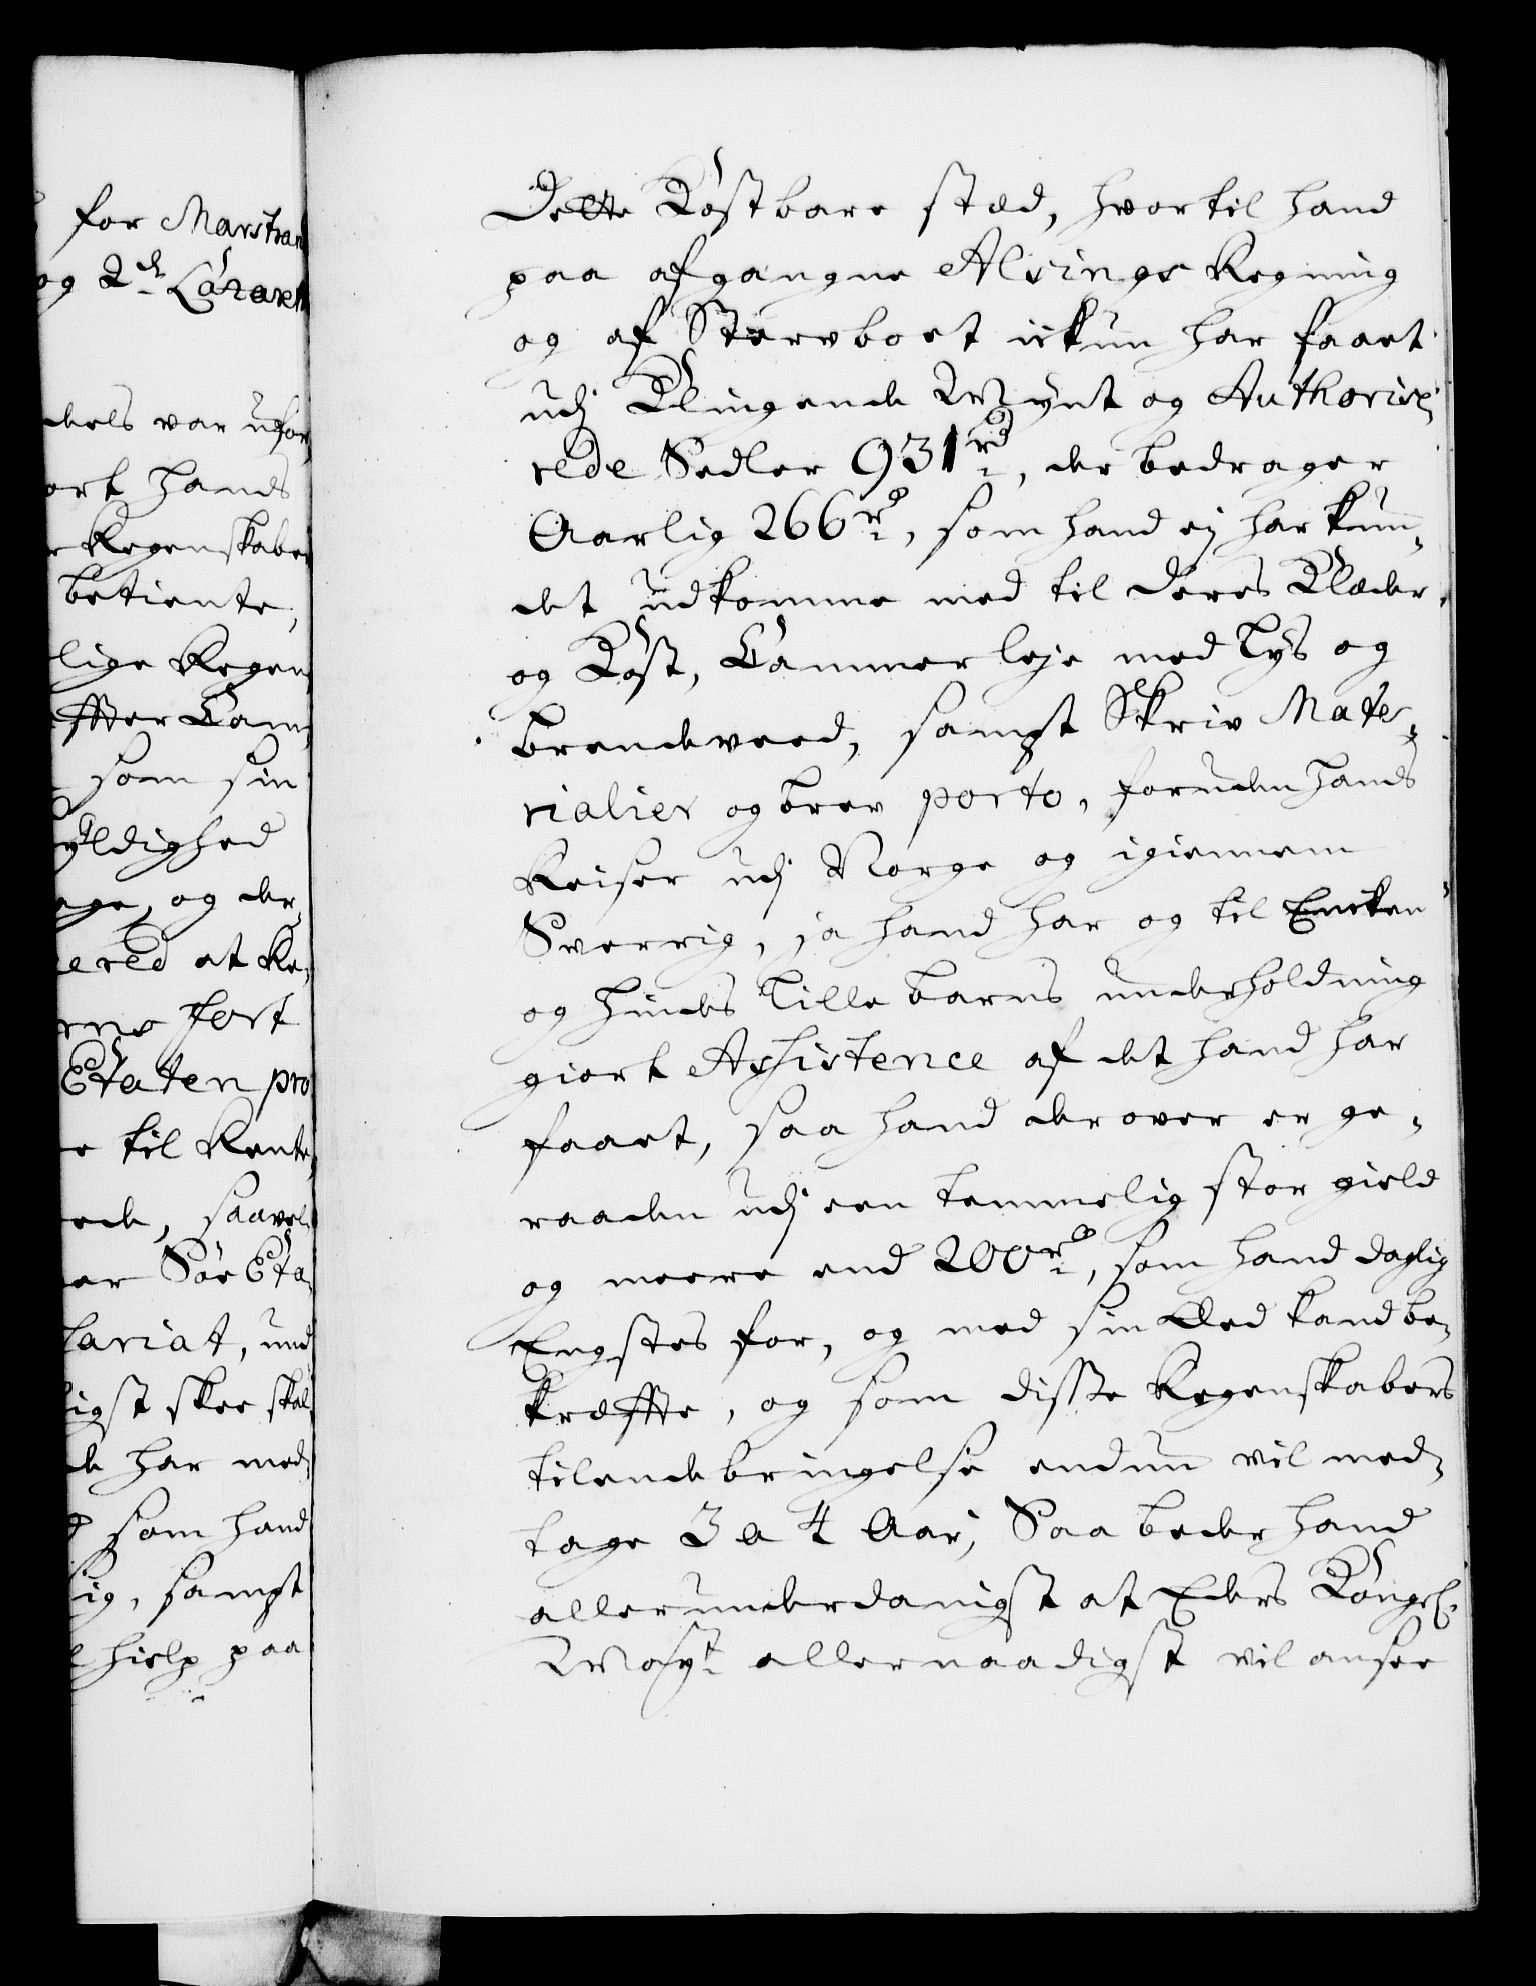 for Marstran
og 2de Lazaret
dels var ufor,
ort hands
Regenskaber
betiente,
lige Regen,
effter Cam,
som sin
yldighed
age, og der,
ered at Re,
rne fort
Etaten pro
e til Rente,
ede, saavel
er Søe Eta,
lariat, und
ligst skee skal
de har med,
som hand
ig, sampt
hielp paa
Dette Kostbare stæd, hvortil hand
paa afgangne Alsings Regning
og af Stervboet ickun har faaet
udj Klingende Mynt og Authorise,
rede Sedler 931 rd, der bedrager
Aarlig 266 rd, som hand ej har kun,
det udkomme med til deres Klæder
og Kost, Cammerleje med Lys og
brendeveed, sampt Skriv Mate,
rialier og brev porto, foruden hands
Reiser udj Norge og igiennem
Sverrig, ja hand har og til Encken
og hindes lille barns underholdning
giort Assistence af det hand har
faaet, saa hand derover er ge,
raaden udj een temmelig stor gield
og meere end 200 rd, som hand daglig
Engstes for, og med sin Eed kand be,
kreffte, og som disse Regenskabers
tilendebringelse endnu vil med,
tage 3 a 4 Aar, Saa beder hand
allerunderdanigst at Eders Kongel.
Mayt allernaadigst vil ansee